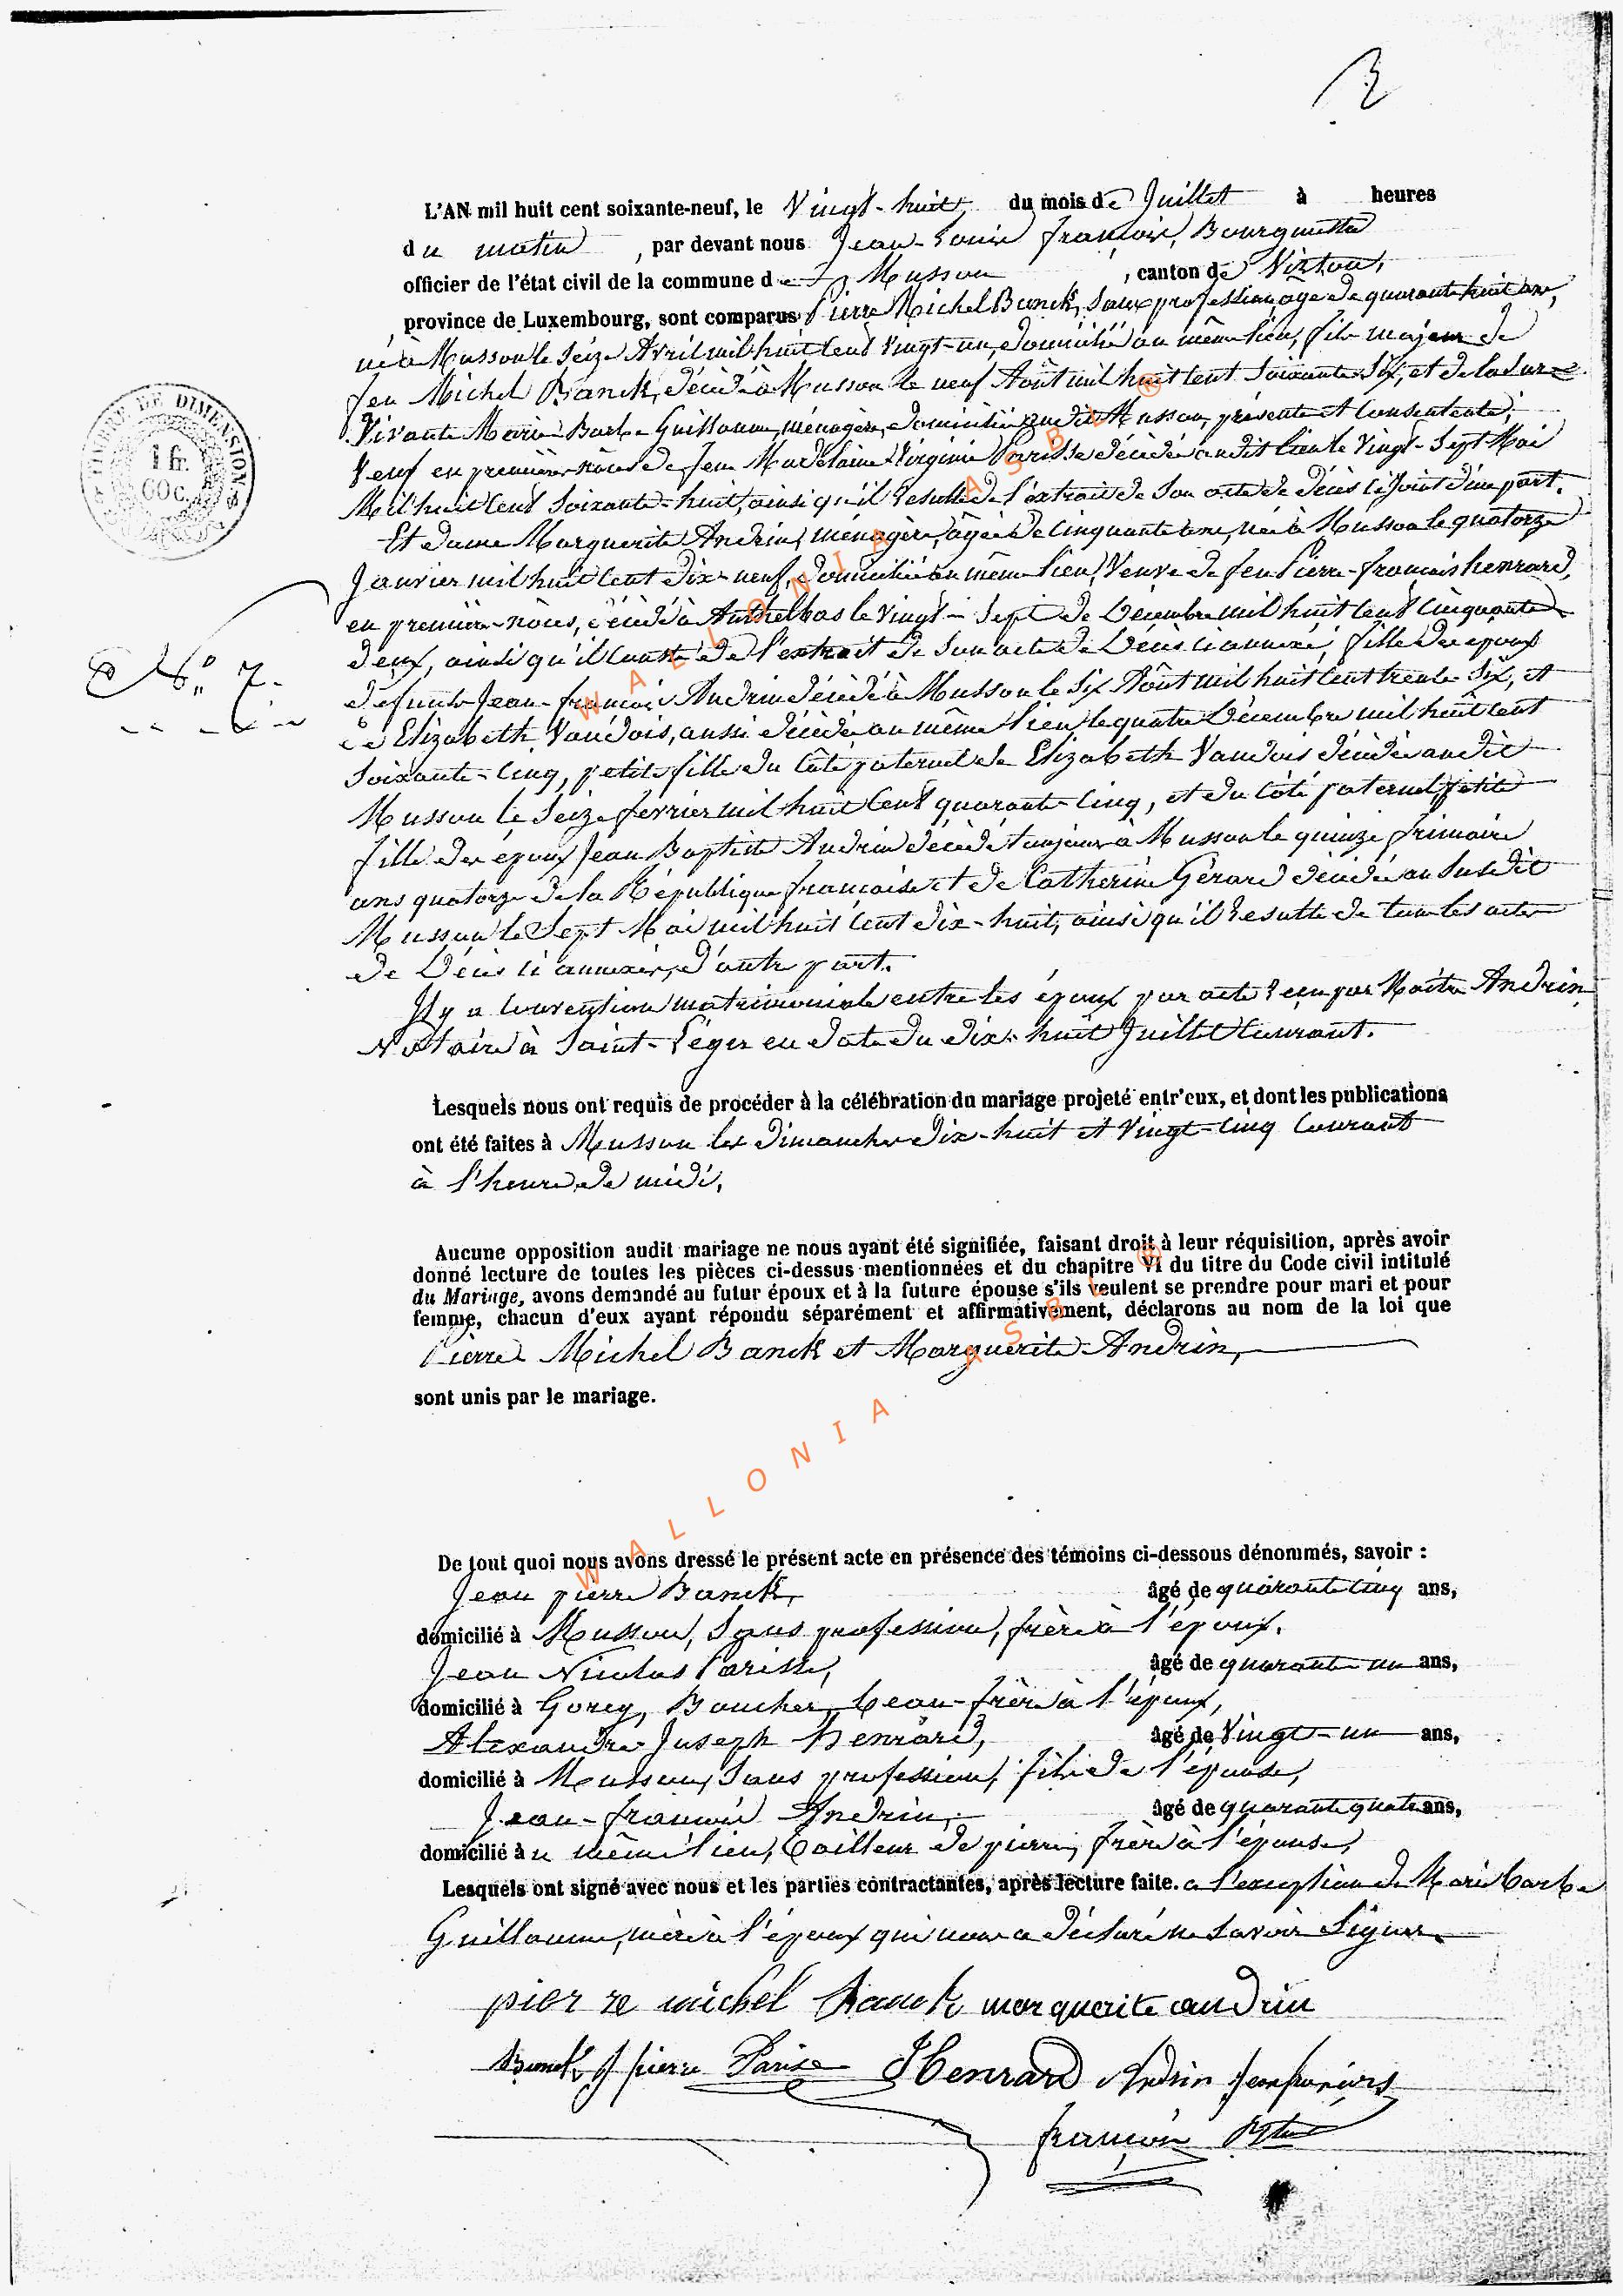 3
L'AN mil huit cent soixante-neuf, le Vingt-huit, du mois de Juillet à heures
du matin, par devant nous Jean-Louis françois, Bourgmestre
officier de l'état civil de la commune de Musson, canton de Virton,
province de Luxembourg, sont comparus Pierre Michel Banck, Sans profession, âgé de quarante huit ans,
né à Musson le Seize Avril mil huit Cent Vingt-un, domicilié au même lieu, fils majeur de
feu Michel Banck, décédé à Musson le neuf Août mil huit Cent Soixante Six, et de la Sur
Vivante Marie Barbe Guillaume, ménagère, domiciliée audit Musson, présente et Consentente;
Veuf en première nôces de feue Madelaine Virginie Parisse décédée audit lieu le Vingt-Sept Mai
Mil huit Cent Soixante-huit, ainsi qu'il résulte de l'extrait de Son acte de décès ci joint d'une part.
Et dame Marguerite Andrin, ménagère, âgée de Cinquante ans, née à Musson le quatorze
Janvier mil huit Cent Dix-neuf, domiciliée au même lieu, Veuve de feu Pierre-françois henrard,
en première-nôces, décédé à Authelbas le Vingt-Sept de Décembre mil huit Cent Cinquante
deux, ainsi qu'il Conste de l'extrait de Son acte de Décès ci annexé, fille des époux
N° 7.
défunts Jean-françois Andrin décédé à Musson le Six Août mil huit Cent trente Six, et
de Elizabeth Vaudois, aussi décédée au même lieu le quatre Décembre mil huit Cent
Soixante-Cinq, petite fille du Côté paternel de Elizabeth Vaudois décédée audit
Musson le Seize fevrier mil huit Cent quarante-Cinq, et du Côté paternel petite
fille des époux Jean Baptiste Andrin décédé toujours à Musson le quinze frimaire
ans quatorze de la République française et de Catherine Gérard décédée au Susdit
Musson le Sept Mai mil huit Cent Dix-huit, ainsi qu'il résulte de tous les actes
de Décès ci annexés, d'autre part.
Il y a Convention matrimoniale entre les époux par acte reçu par Maître Andrin
Notaire à Saint-Léger en date du dix-huit Juillet Courant.
Lesquels nous ont requis de procéder à la célébration du mariage projeté entr'eux, et dont les publications
ont été faites à Musson les Dimanches Dix-huit et Vingt-Cinq Courant
à l'heure de midi,
Aucune opposition audit mariage ne nous ayant été signifiée, faisant droit à leur réquisition, après avoir
donné lecture de toutes les pièces ci-dessus mentionnées et du chapitre VI du titre du Code civil intitulé
du Mariage, avons demandé au futur époux et à la future épouse s'ils veulent se prendre pour mari et pour
femme, chacun d'eux ayant répondu séparément et affirmativement, déclarons au nom de la loi que
Pierre Michel Banck et Marguerite Andrin,
sont unis par le mariage.
De tout quoi nous avons dressé le présent acte en présence des témoins ci-dessous dénommés, savoir :
Jean pierre Banck, âgé de quarante Cinq ans,
domicilié à Musson, Sans profession, frère à l'époux.
Jean Nicolas Parisse, âgé de quarante un ans,
domicilié à Gorcy, Boucher, beau-frère à l'époux,
Alexandre Joseph Henrard, âgé de Vingt-un ans,
domicilié à Musson, Sans profession, fils de l'épouse,
Jean-françois Andrin, âgé de quarante quatre ans,
domicilié au même lieu, Tailleur de pierre, frère à l'épouse,
Lesquels ont signé avec nous et les parties contractantes, après lecture faite. a l'exception de Marie barbe
Guillaume, mère à l'époux qui nous a déclaré ne Savoir Signer.
pierre michel Banck marguerite andrin
Banck J pierre Parisse Henrard Andrin jean françois
françois
TIMBRE DE DIMENSION
1 fr.
60 c.
WALLONIA ASBL ®
WALLONIA ASBL ®